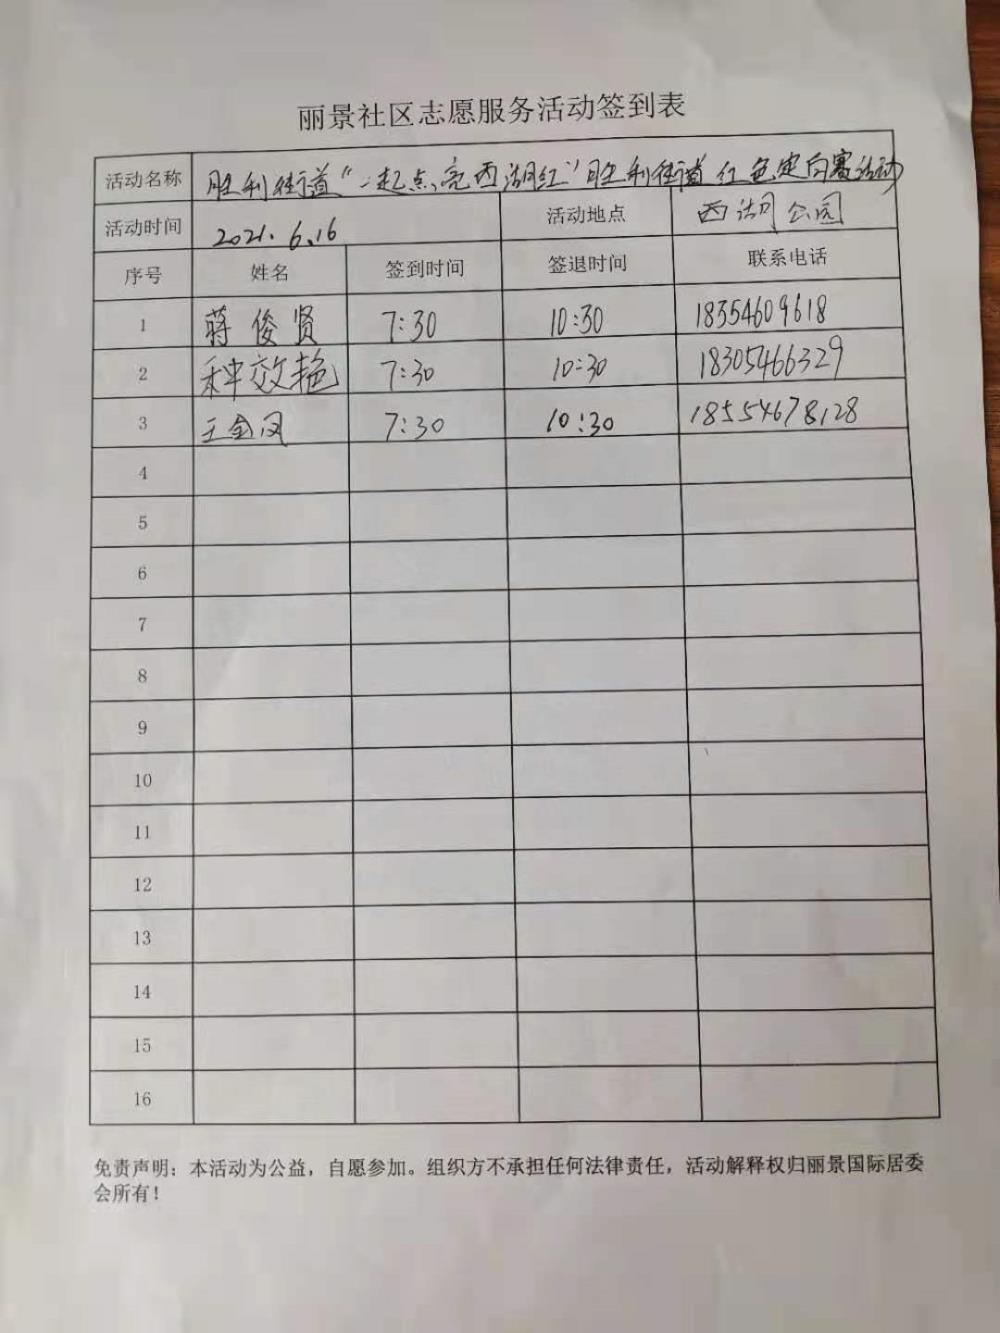 丽景社区志愿服务活动签到表
活动名称 胜利街道“一起点亮西湖红”胜利街道红色定向赛活动
活动时间 2021.6.16 活动地点 西湖公园
序号 姓名 签到时间 签退时间 联系电话
1 蒋俊贤 7:30 10:30 18354609618
2 种效艳 7:30 10:30 18305466329
3 王金凤 7:30 10:30 18554678128
4
5
6
7
8
9
10
11
12
13
14
15
16
免责声明：本活动为公益，自愿参加。组织方不承担任何法律责任，活动解释权归丽景国际居委
会所有！